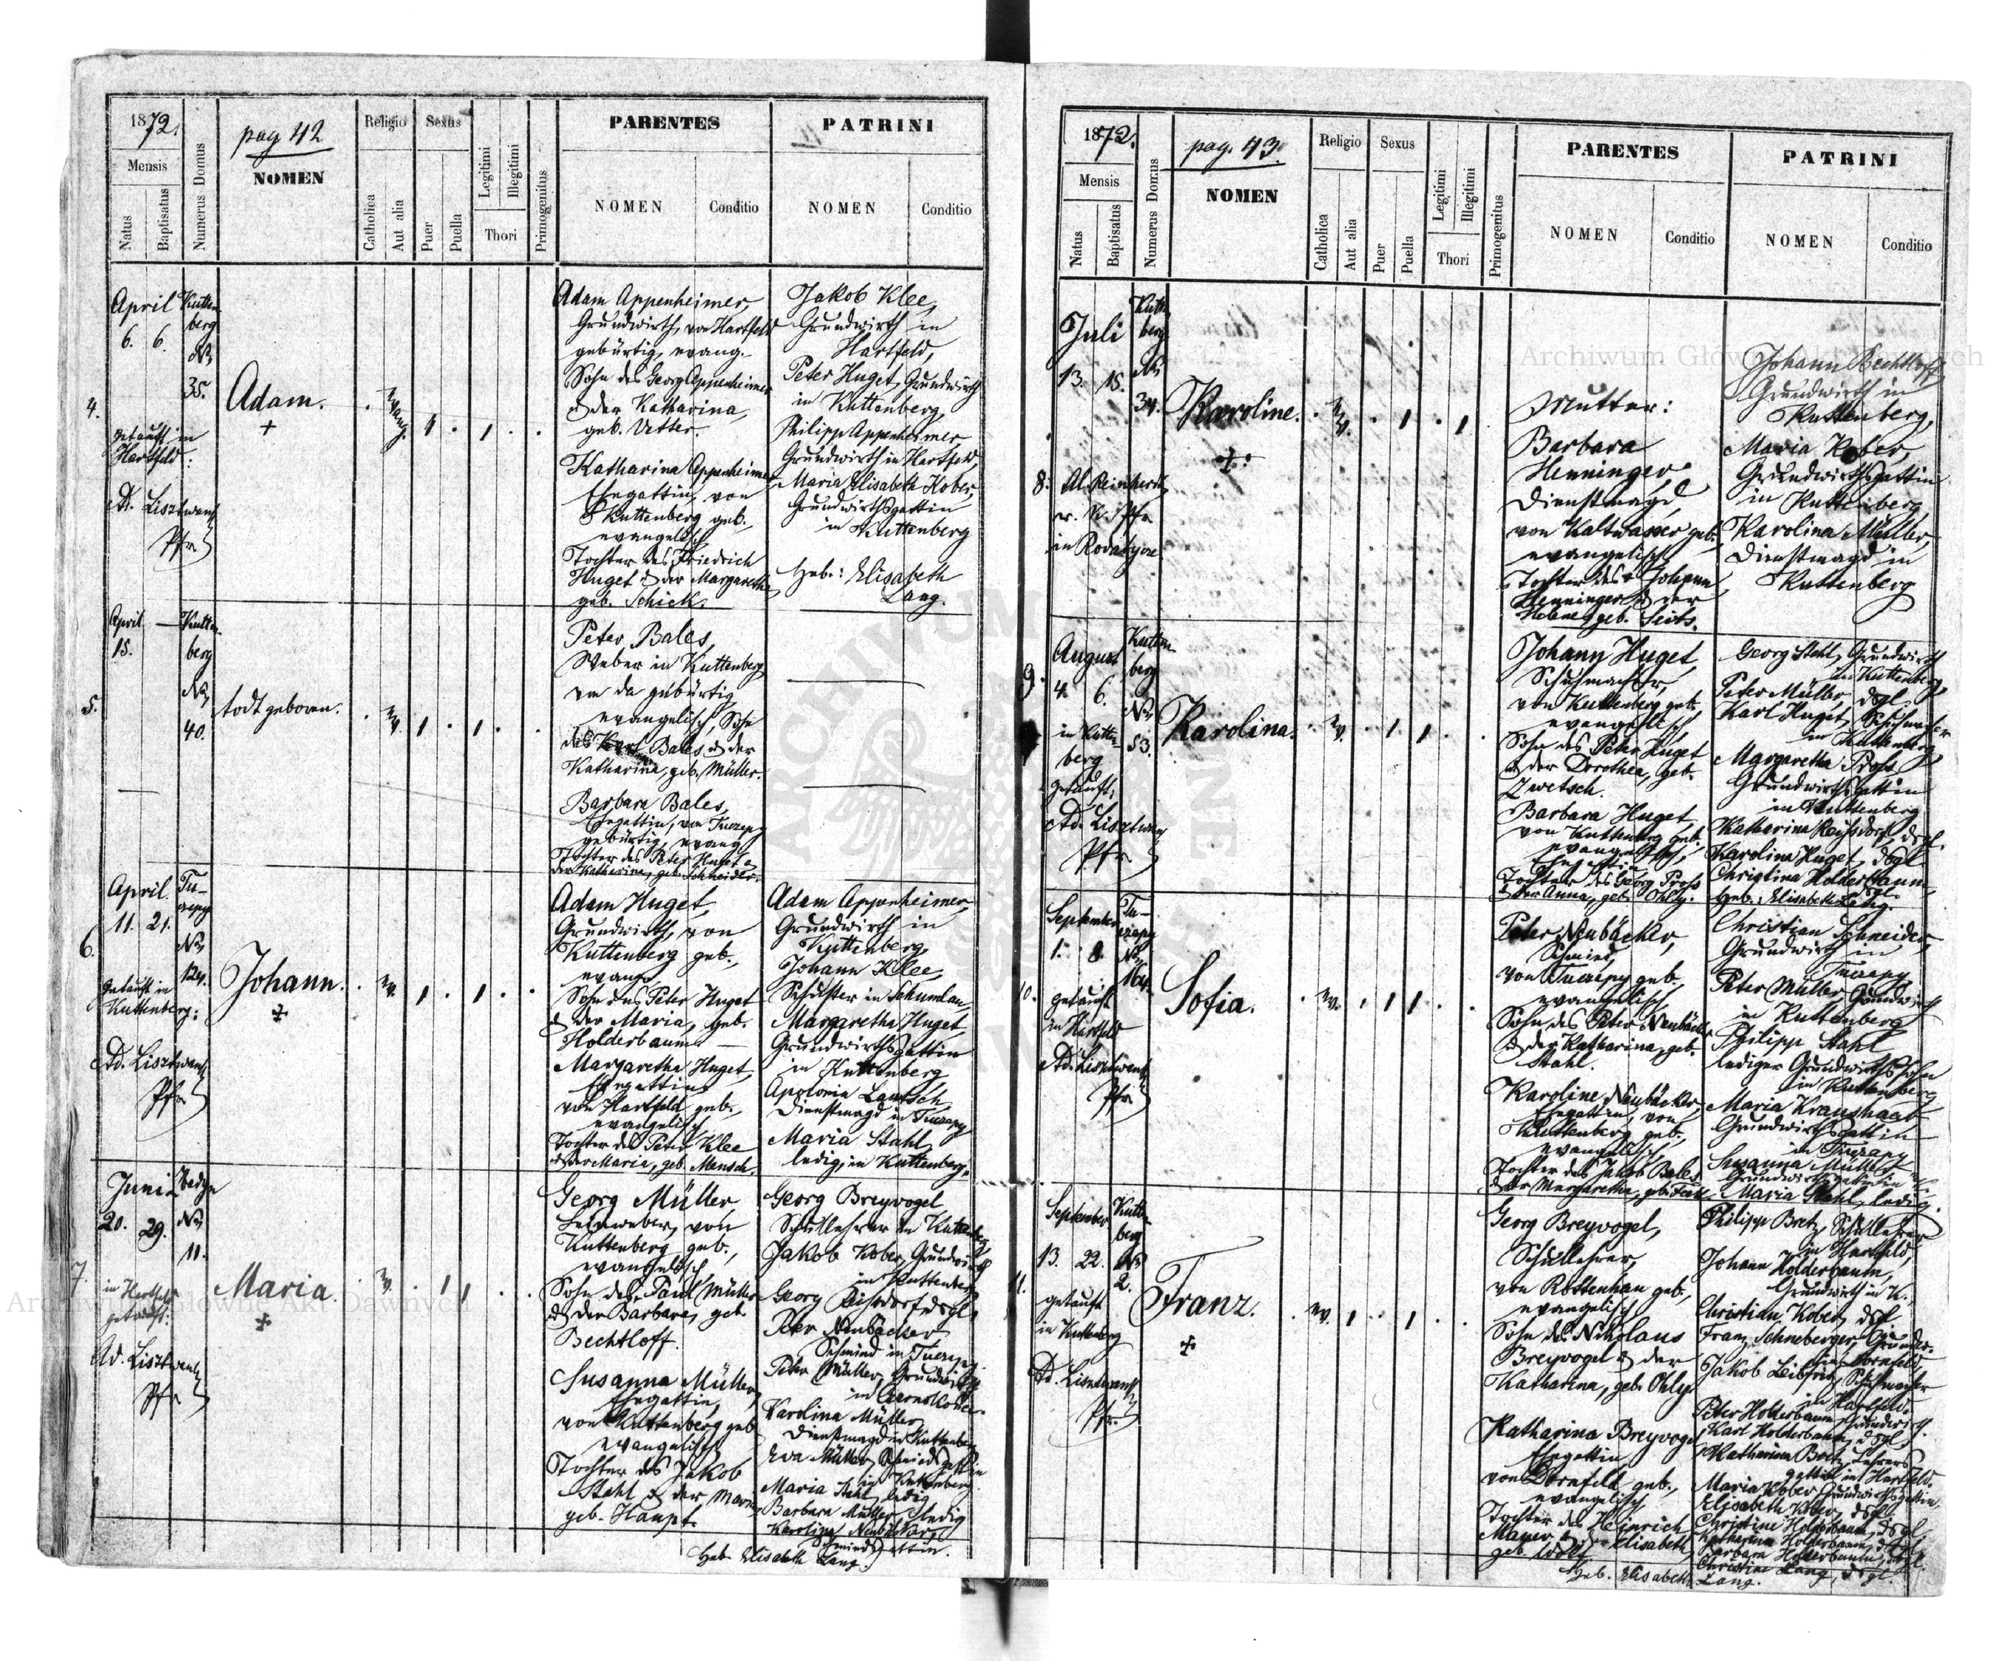 1872.
pag 42
NOMEN
Mensis
Natus
Baptisatus
Numerus Domus
Religio
Catholica
Aut alia
Sexus
Puer
Puella
Legitimi
Illegitimi
Thori
Primogenitus
PARENTES
NOMEN
Conditio
PATRINI
NOMEN
Conditio
4.
April
6. 6.
Kutten-
berg
No
35.
getauft in
Hartfeld:
Pfr
Adam.
evang.
Adam Appenheimer,
Grundwirth, von Hartfeld
gebürtig, evang.
Sohn des Georg Appenheimer
& der Katharina,
geb. Vetter.
Katharina Appenheimer
Ehegattin, von
Kuttenberg geb.
evangelisch
Tochter des Friedrich
Huget & der Margaretha
geb. Schick.
Jakob Klee,
Grundwirth in
Hartfeld,
Peter Huget, Grundwirth
in Kuttenberg,
Philipp Appenheimer
Grundwirth in Hartfeld,
Maria Elisabeth Kober,
Grundwirthsgattin
in Kuttenberg
Heb.: Elisabeth
Lang.
5.
April
15.
Kutten-
berg
No
40.
todt geboren.
ev.
Peter Bales,
Weber in Kuttenberg
von da gebürtig
evangelisch, Sohn
des Karl Bales & der
Katharina, geb. Müller.
Barbara Bales,
Ehegattin, von Tuczapy
gebürtig, evang.
Tochter des Peter Huget &
der Katharina, geb. Schneider.
6.
April
11. 21.
Tu-
czapy
No
124.
getauft in
Kuttenberg:
Pfr
Johann.
ev.
Adam Huget,
Grundwirth, von
Kuttenberg geb.,
evang.
Sohn des Peter Huget
& der Maria, geb.
Holderbaum
Margaretha Huget,
Ehegattin
von Hartfeld geb.,
evangelisch
Tochter des Peter Klee
& der Maria, geb. Mensch.
Adam Appenheimer,
Grundwirth in
Kuttenberg,
Johann Klee,
Schuster in Schumlau,
Margaretha Huget,
Grundwirthsgattin
in Kuttenberg
Apolonia Lautsch,
Dienstmagd in Tuczapy
Maria Stahl,
ledig, in Kuttenberg.
7.
Juni
20. 29.
No
11.
in Hartfeld
getauft:
Pfr
Maria
ev.
Georg Müller
Leinweber, von
Kuttenberg geb.,
evangelisch
Sohn des Paul Müller
& der Barbara, geb.
Bechtloff.
Susanna Müller,
Ehegattin,
von Kuttenberg geb.
evangelisch
Tochter des Jakob
Stahl & der Maria
geb. Haupt.
Georg Breyvogel
Schullehrer in Kuttenberg
Jakob Kober, Grundwirth
in Kuttenberg
Georg Reichsdorf, dsgl.
Peter Neubäcker
Schmied in Tuczapy
Peter Müller, Grundwirth
in
Karolina Müller
Dienstmagd in Kuttenberg
Eva Müller, Schmiedsgattin
in Kuttenberg
Maria Stahl, ledig
Barbara Müller, ledig
Karolina Neubäcker,
Schmiedsgattin.
Heb. Elisabeth Lang.
1872.
pag. 43.
NOMEN
Mensis
Natus
Baptisatus
Numerus Domus
Religio
Catholica
Aut alia
Sexus
Puer
Puella
Legitimi
Illegitimi
Thori
Primogenitus
PARENTES
NOMEN
Conditio
PATRINI
NOMEN
Conditio
8.
Juli
13. 15.
Kutten-
berg
No
34.
Karoline.
ev.
Mutter:
Barbara
Henninger
Dienstmagd
von Kaltwasser geb.,
evangelisch
Tochter des Johann
Henninger & der
Helena, geb. Seits.
Johann Bechtloff
Grundwirth in
Kuttenberg,
Maria Kober,
Grundwirthsgattin
in Kuttenberg
Karolina Müller,
Dienstmagd in
Kuttenberg
9.
August
4. 6.
Kutten-
berg
No
53.
in Kutten-
berg
getauft;
Pfr
Karolina.
ev.
Johann Huget,
Schuhmacher,
von Kuttenberg geb.
evangelisch
Sohn des Peter Huget
& der Dorothea, geb.
Zwetsch.
Barbara Huget
von Kuttenberg geb.
evangelisch,
Ehegattin
Tochter des Georg Pross
& der Anna, geb. Ohly.
Georg Stahl, Grundwirth
in Kuttenberg,
Peter Müller, dsgl.
Karl Huget, Schuhmacher
in Kuttenberg
Margaretha Pross
Grundwirthsgattin
in Kuttenberg
Katharina Reichsdorf, dsgl.
Karolina Huget, dsgl.
Christina Holderbaum,
dsgl.
Heb.: Elisabeth Lang.
10.
September
1. 8.
Tu-
czapy
No
104.
getauft
in Hartfeld
Pfr
Sofia.
ev.
Peter Neubäcker,
Schmied,
von Tuczapy geb.,
evangelisch
Sohn des Peter Neubäcker
& der Katharina, geb.
Stahl.
Karoline Neubäcker,
Ehegattin, von
Kuttenberg geb.,
evangelisch,
Tochter des Jakob Bales
Christian Schneider,
Grundwirth in
Tuczapy
Peter Müller, Grundwirth
in Kuttenberg
Philipp Stahl
lediger Grundwirthssohn
in Kuttenberg
Maria Kraushaar
Grundwirthsgattin
in Tuczapy
Susanna Müller
Grundwirthsgattin
Maria Stahl, ledig.
11.
September
13. 22.
Kutten-
berg
No
2.
getauft
in Kuttenberg
Pfr.
Franz.
ev.
Georg Breyvogel,
Schullehrer,
von Rottenhan geb.,
evangelisch
Sohn des Nikolaus
Breyvogel & der
Katharina, geb. Ohly.
Katharina Breyvogel
Ehegattin
von Dornfeld geb.,
evangelisch
Tochter des Heinrich
Mauer & der Elisabeth
geb. Wolf
Philipp Bretz, Schullehrer
in Hartfeld,
Johann Holderbaum,
Grundwirth in K.,
Christian Kober, dsgl.
Franz Schneberger, Grundw.
in Dornfeld
Jakob Leibfried, Schuhmacher
in Hartfeld.
Peter Holderbaum, Grundwirth.
Karl Holderbaum, dsgl.
Katharina Bretz, Lehrers-
gattin in Hartfeld.
Maria Kober Grundwirthsgattin.
Elisabeth Kober, dsgl.
Christine Holderbaum, dsgl.
Katharina Holderbaum, dsgl.
Barbara Holderbaum, dsgl.
Christine Lang, dsgl.
Heb. Elisabeth Lang.
Archiwum Główne Akt Dawnych
Archiwum Główne Akt Dawnych